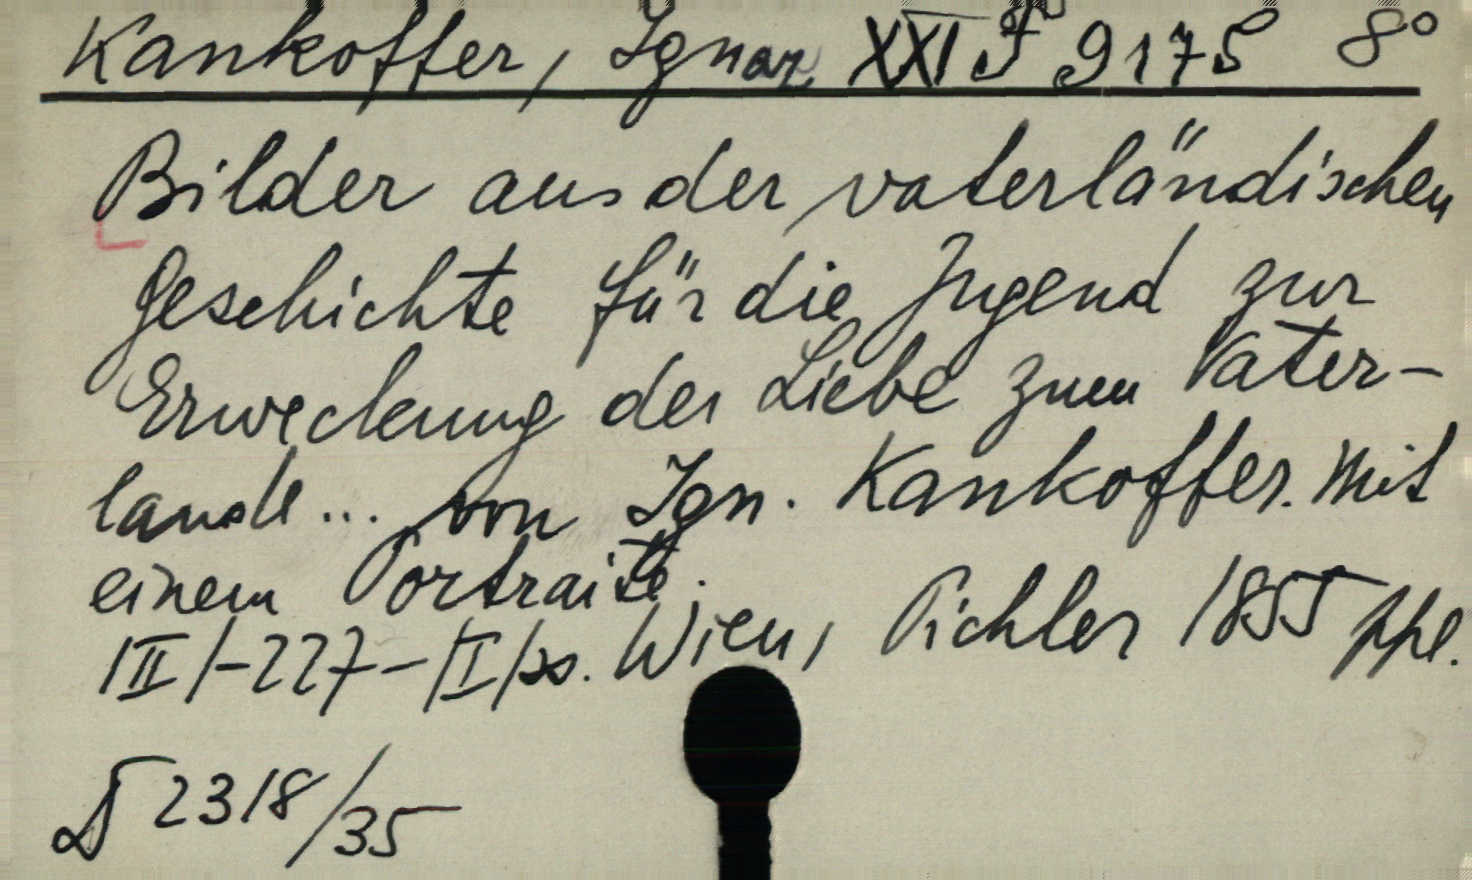 Kankoffer, Ignaz XXI F 9175 8°
Bilder aus der vaterländischen
Geschichte für die Jugend zur
Erweckung der Liebe zum Vater-
lande... von Ign. Kankoffer. Mit
einem Portraite.
/II/-227-/I/ ss. Wien, Pichler 1855 ppl.
D 2318/35